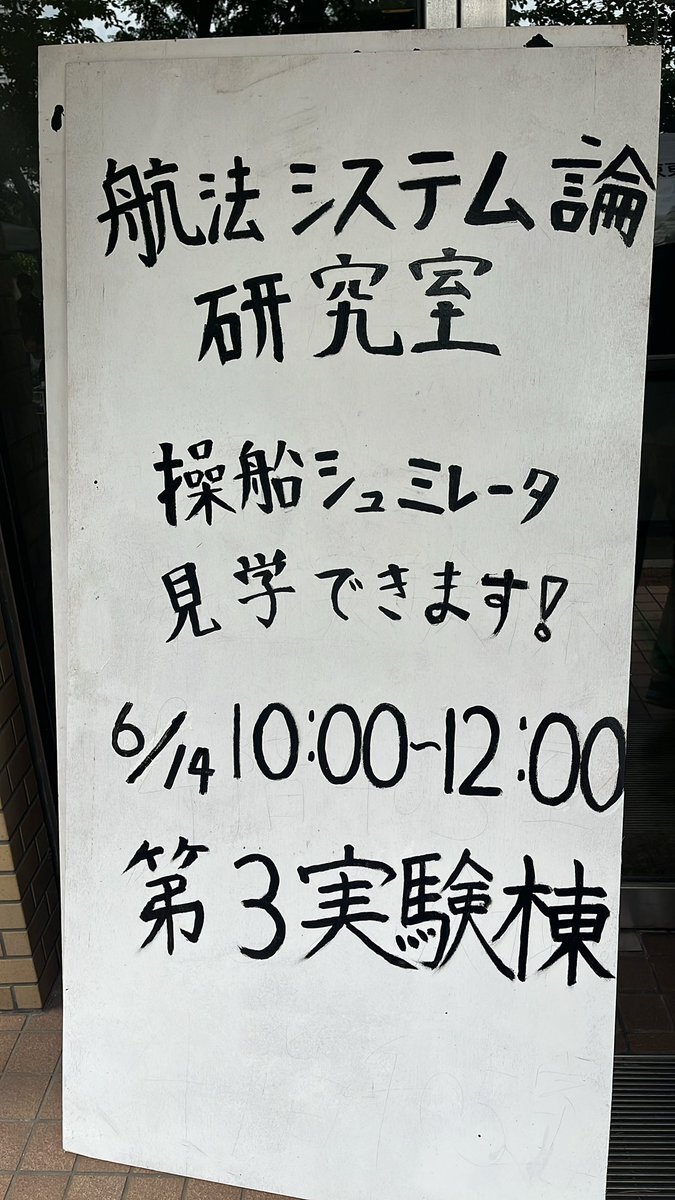 航法システム論
研究室
操船シュミレータ
見学できます!
6/14 10:00~12:00
第3実験棟